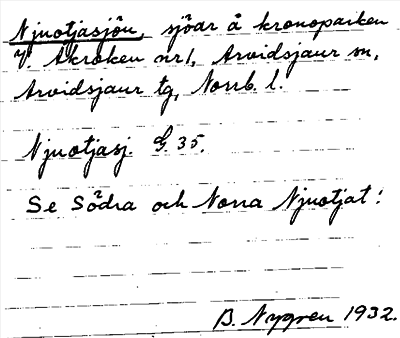 Njuotjasjön, sjöar å kronoparken
V. Akroken nr1, Arvidsjaur sn,
Arvidsjaur tg, Norrb. l.
Njuotjasj. G 35.
Se Södra och Norra Njuotjat:
B. Nygren 1932.